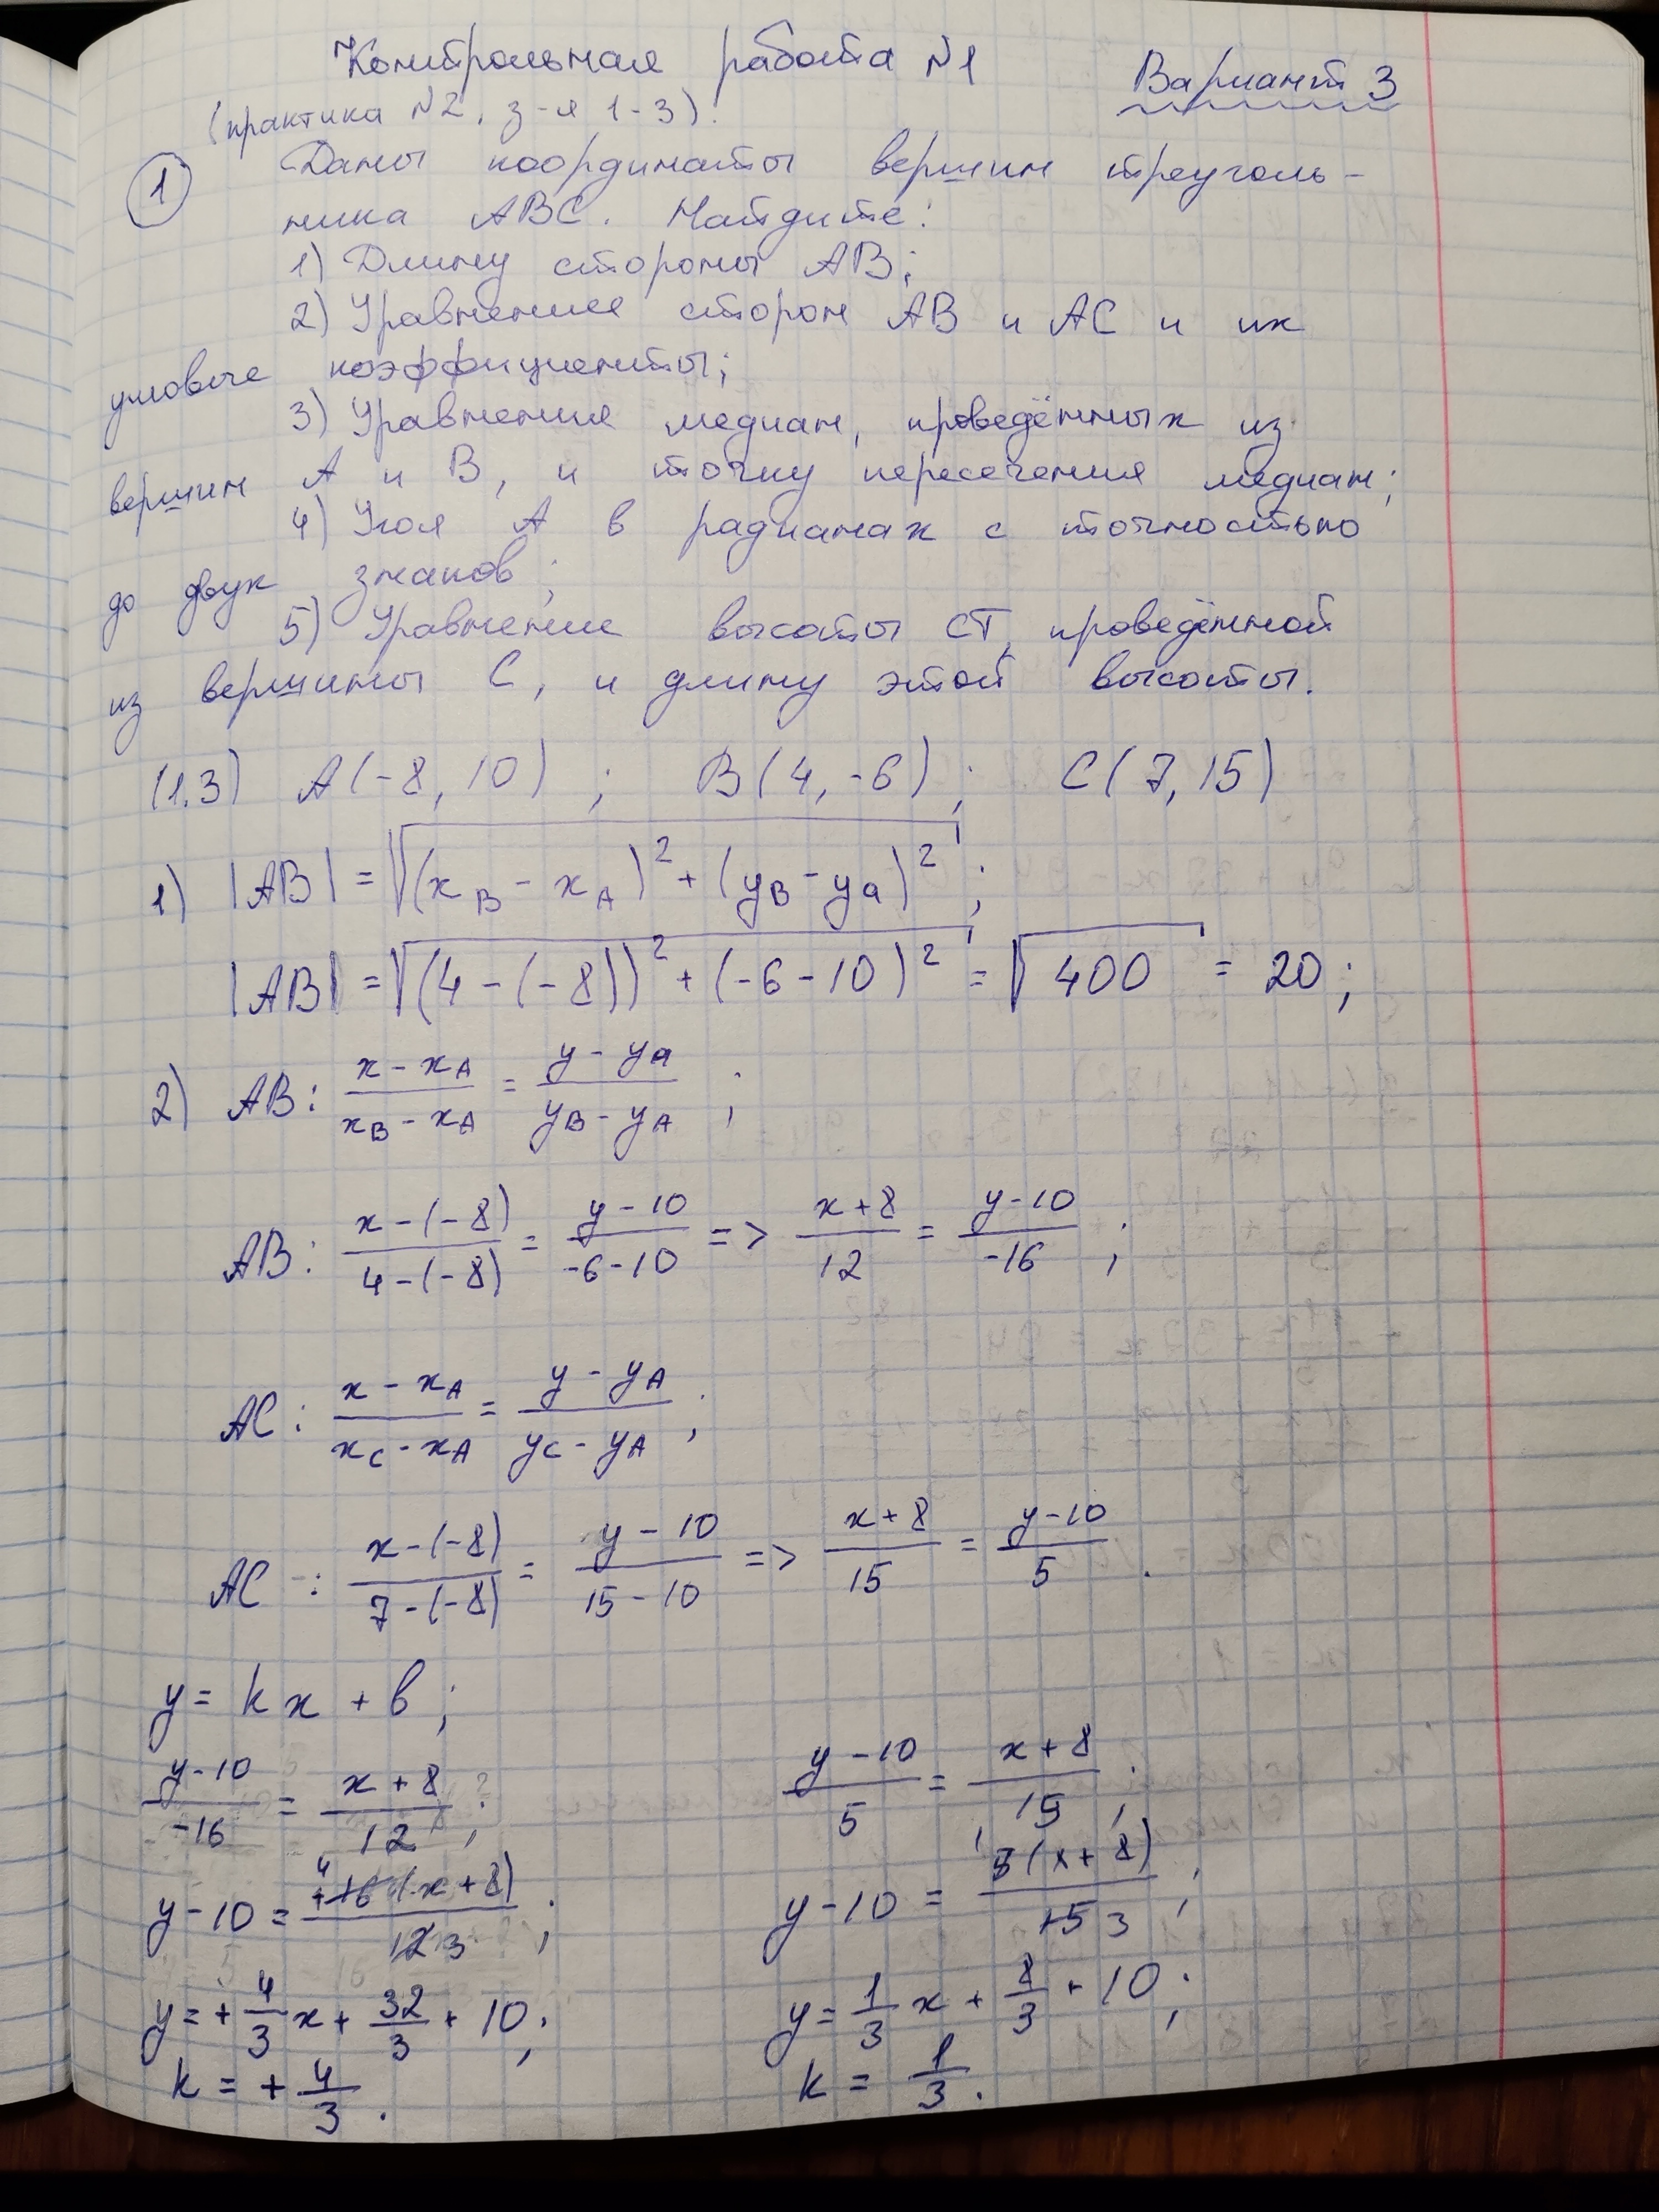 Контрольная работа №1
Вариант 3
(практика №2, з-я 1-3).
1 Даны координаты вершин треуголь-
ника ABC. Найдите:
1) Длину стороны AB;
2) Уравнения сторон AB и AC и их
угловые коэффициенты;
3) Уравнения медиан, проведённых из
вершин A и B, и точку пересечения медиан;
4) Угол A в радианах с точностью
до двух знаков;
5) Уравнение высоты CT, проведённой
из вершины C, и длину этой высоты.
(1.3) A(-8, 10) ; B(4, -6) ; C(7, 15)
1) |AB| = √((x_B - x_A)² + (y_B - y_A)²) ;
|AB| = √((4 - (-8))² + (-6 - 10)²) = √400 = 20 ;
2) AB: (x - x_A)/(x_B - x_A) = (y - y_A)/(y_B - y_A) ;
AB: (x - (-8))/(4 - (-8)) = (y - 10)/(-6 - 10) => (x + 8)/12 = (y - 10)/-16 ;
AC: (x - x_A)/(x_C - x_A) = (y - y_A)/(y_C - y_A) ;
AC : (x - (-8))/(7 - (-8)) = (y - 10)/(15 - 10) => (x + 8)/15 = (y - 10)/5 .
y = kx + b ;
(y - 10)/-16 = (x + 8)/12 ;
(y - 10)/5 = (x + 8)/15 ;
y - 10 = +4(x + 8)/3 ;
y - 10 = 1(x + 8)/3 ;
y = + 4/3 x + 32/3 + 10 ;
y = 1/3 x + 8/3 + 10 ;
k = + 4/3 .
k = 1/3 .